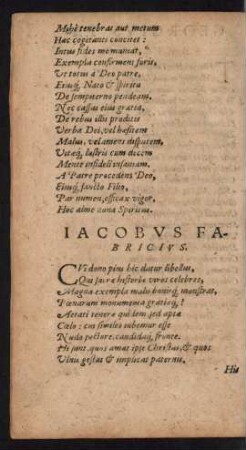 Mihi tenebras aut metum
Hac cogitanti conciter:
Intus fides me muniat,
Exempla confirment foris,
Ut totus a Deo patre,
Eiusq́; Nato & spiritu
De sempiterno pendeam.
Nec cassus eius gratia,
De rebus illis proditis
Verbo Dei, vel hæsitem
Malus, vel amens disputem,
Vitæq́; lustris cum decem
Mente infideli insaniam.
A Patre procedens Deo,
Eiusq́; sancto Filio,
Par numen, efficax vigor,
Hoc alme dona Spiritus.
IACOBVS FA-
BRICIVS.
CVi dono pius hic datur libellus,
Qui sacræ historiæ viros celebres,
Magna exempla mali boniq́; monstrat,
Pœnarum monumenta gratiæq́;?
Aetati teneræ quidem, sed aptæ
Cælo: cui similes iubemur esse
Nudo pectore, candidaq́; fronte.
Hi sunt, quos amat ipse Christus, & quos
Vlnis gestat & implicat paternis.
His